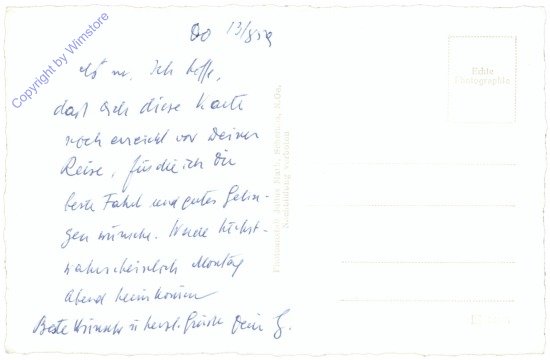 Do 13/8 59
Ich hoffe,
daß Dich diese Karte
noch erreicht vor Deiner
Reise, für die ich Dir
beste Fahrt und gutes Gelin-
gen wünsche. Werde höchst-
wahrscheinlich Montag
Abend heimkommen
Beste Wünsche u herzl. Grüße Dein G.
Echte
Photographie
Copyright by Wimstore